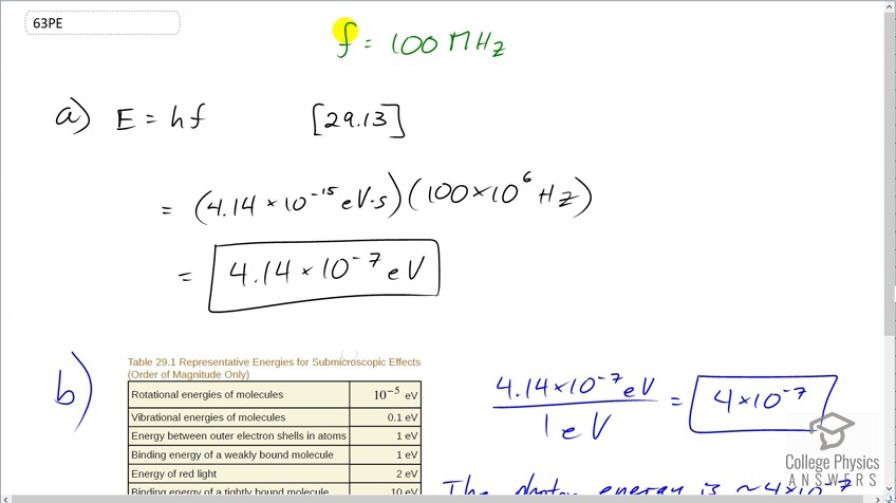 63PE
f = 100 MHz
a) E = hf [29.13]
= (4.14 × 10⁻¹⁵ eV·s)(100×10⁶ Hz)
= 4.14 × 10⁻⁷ eV
b)
Table 29.1 Representative Energies for Submicroscopic Effects
(Order of Magnitude Only)
Rotational energies of molecules 10⁻⁵ eV
Vibrational energies of molecules 0.1 eV
Energy between outer electron shells in atoms 1 eV
Binding energy of a weakly bound molecule 1 eV
Energy of red light 2 eV
Binding energy of a tightly bound molecule 10 eV
4.14×10⁻⁷ eV
1 eV
= 4×10⁻⁷
The photon energy is ~4×10⁻⁷
College Physics
ANSWERS